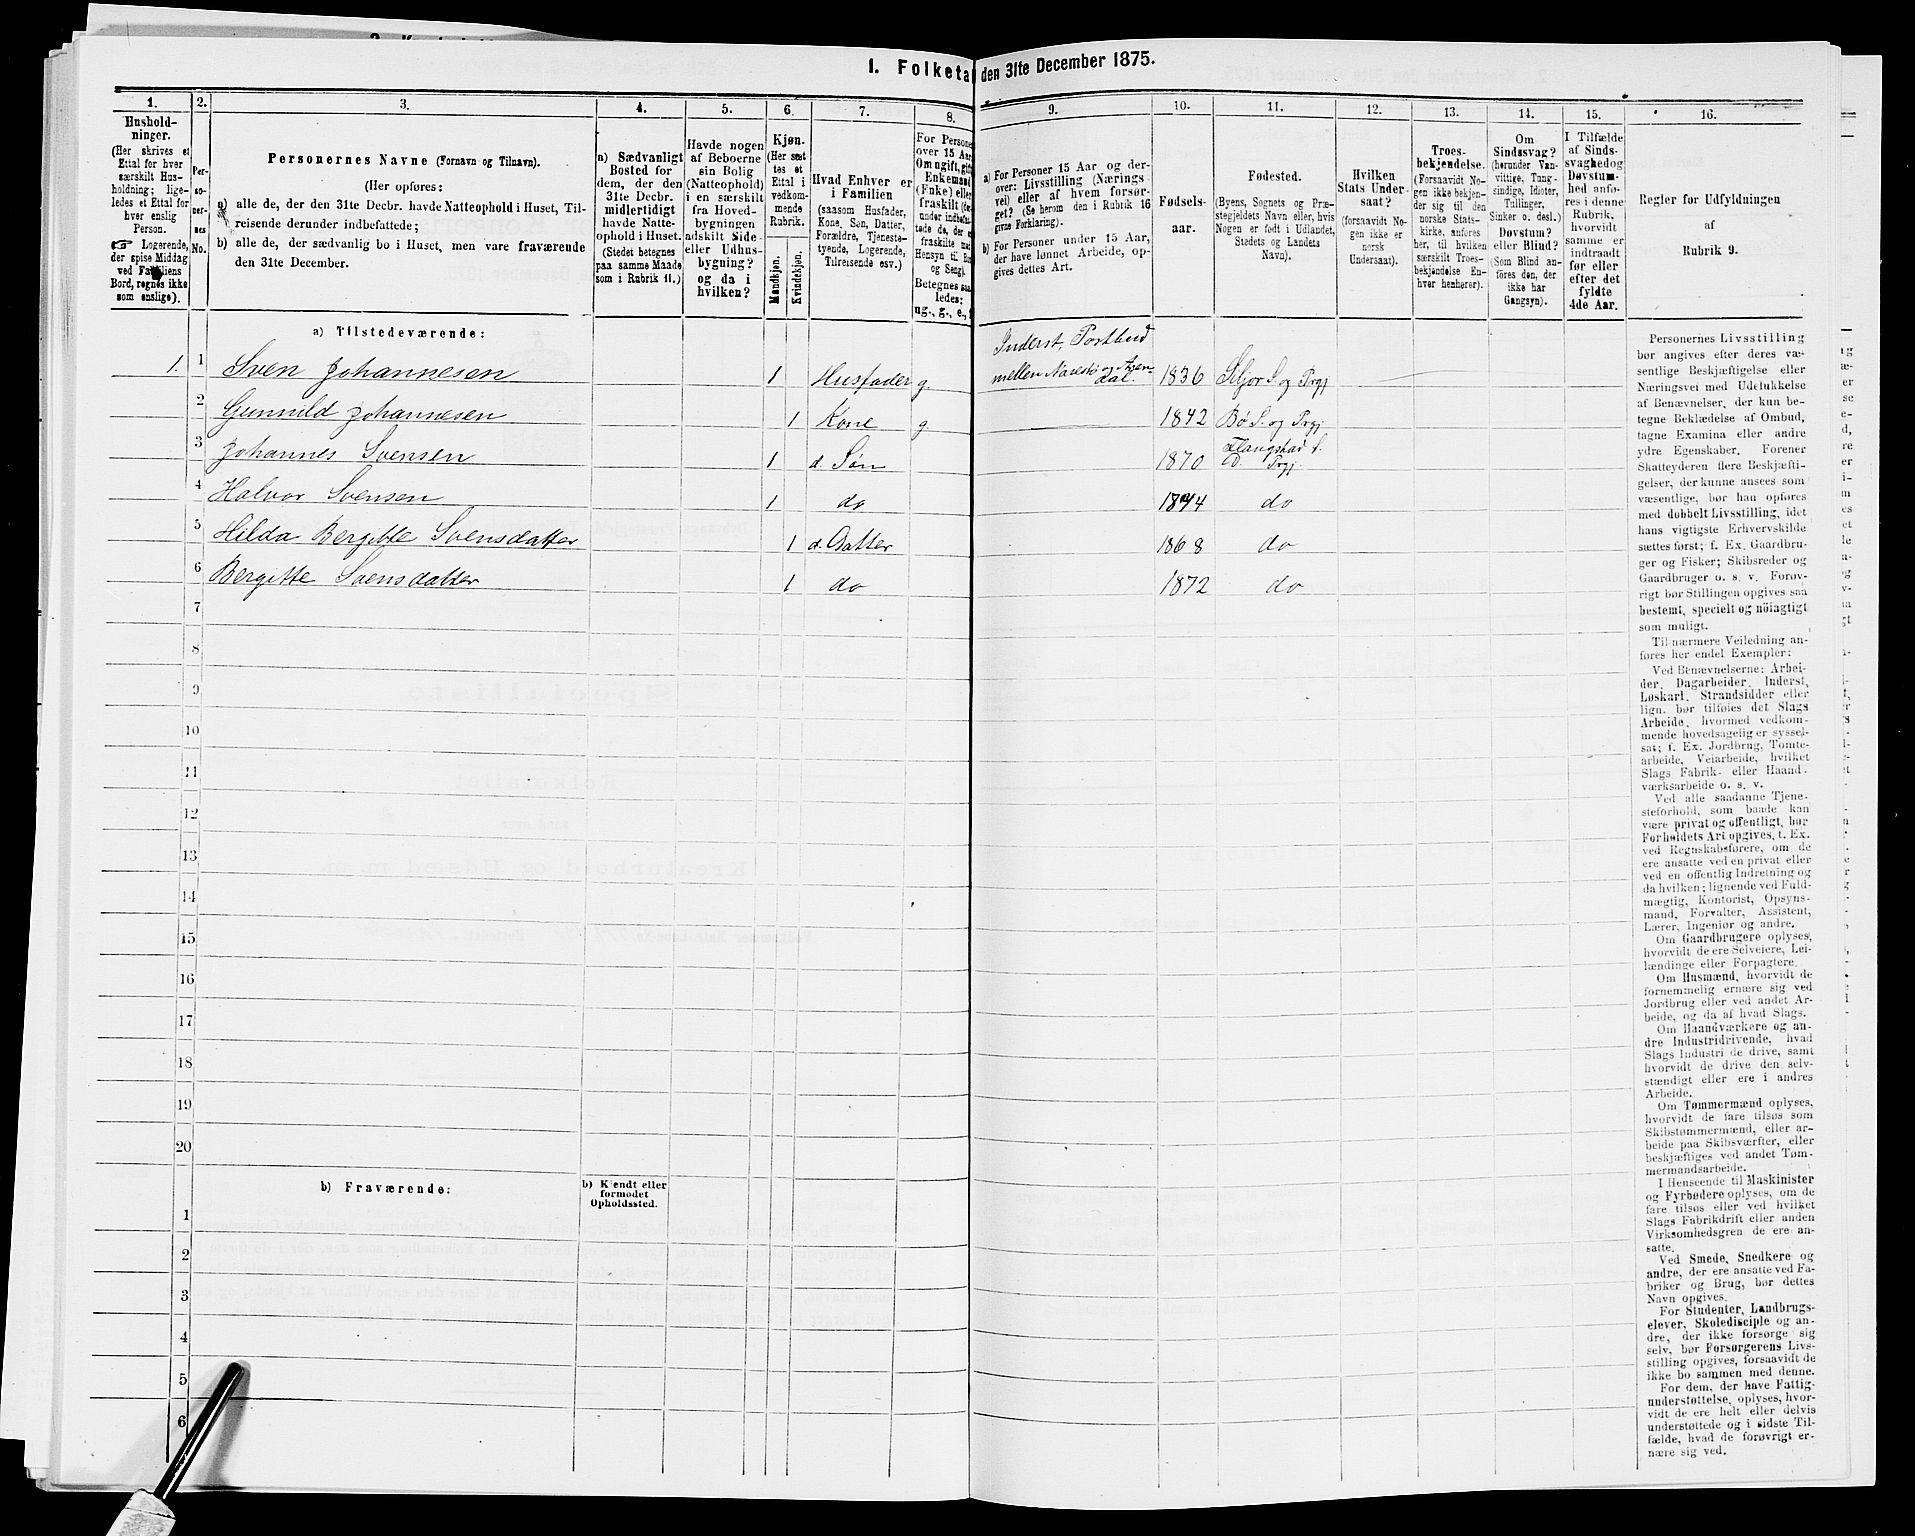 1. Folketa
den 31te December 1875.
1.
2.
3.
4.
5.
6.
7.
8.
9.
10.
11.
12.
13.
14.
15.
16.
Hushold-
ninger.
(Her skrives et
Ettal for hver
særskilt Hus-
holdning; lige-
ledes et Ettal for
hver enslig
Person.
☞ Logerende,
der spise Middag
ved Familiens
Bord, regnes ikke
som enslige).
Per-
so-
ner-
nes
No.
Personernes Navne (Fornavn og Tilnavn).
(Her opføres:
a) alle de, der den 31te Decbr. havde Natteophold i Huset, Til-
reisende derunder indbefattede;
b) alle de, der sædvanlig bo i Huset, men vare fraværende
den 31te December.
a) Sædvanligt
Bosted for
dem, der den
31te Decbr.
midlertidigt
havde Natte-
ophold i Huset.
(Stedet betegnes
paa samme Maade
som i Rubrik 11.)
Havde nogen
af Beboerne
sin Bolig
(Natteophold)
i en særskilt
fra Hoved-
bygningen
adskilt Side-
eller Udhus-
bygning?
og da i
hvilken?
Kjøn.
(Her sæt-
tes et
Ettal i
vedkom-
mende
Rubrik.
Mandkjøn.
Kvindekjøn.
Hvad Enhver er
i Familien
(saasom Husfader,
Kone, Søn, Datter,
Forældre, Tjeneste-
tyende, Logerende,
Tilreisende osv.)
For Persone
over 15 Aar
Om ugift, gift
Enkemand
(Enke) eller
fraskilt
Betegnes saa
ledes:
ug., g., e., f
a) For Personer 15 Aar og der-
over: Livsstilling (Nærings
vei) eller af hvem forsør-
get? (Se herom den i Rubrik 16
givne Forklaring.)
b) For Personer under 15 Aar,
der have lønnet Arbeide, op-
gives dettes Art.
Fødsels-
aar.
Fødested.
(Byens, Sognets og Præ-
stegjeldets Navn eller, hvis
Nogen er født i Udlandet,
Stedets og Landets
Navn).
Hvilken
Stats Under-
saat?
(forsaavidt No-
gen ikke er
norsk
Undersaat).
Troes-
bekjendelse.
(Forsaavidt No-
gen ikke bekjen-
der sig til den
norske Stats-
kirke, anføres
her, til hvilken
særskilt Troes-
bekjendelse En-
hver henhører).
Om
Sindssvag?
(herunder Van-
vittige, Tung-
sindige, Idioter,
Tullinger,
Sinker o. desl.)
Døvstum?
eller Blind?
(Som Blind an-
føres den, der
ikke har
Gangsyn).
I Tilfælde
af Sinds-
svaghed og
Døvstum-
hed anfø-
res i denne
Rubrik,
hvorvidt
samme er
indtraadt
før eller
efter det
fyldte
4de Aar.
Regler for Udfyldningen
af
Rubrik 9.
a) Tilstedeværende:
1. 1 Sven Johannesen 1 Husfader g. Inderst, Postbud
mellem Naveskø og Aren-
dal. 1836 Seljor S. og Prgj
2 Gunnild Johannesen 1 Kone g. 1842 Bø S. og Prgj
3 Johannes Svensen 1 d. Søn 1870 S.
Prgj.
4 Halvor Svensen 1 do 1874 do
5 Hilda Bergitte Svensdatter 1 d. Datter 1868 do
6 Bergitte Svensdatter 1 do 1872 do
7
8
9
10
11
12
13
14
15
16
17
18
19
20
b) Fraværende:
b) Kjendt eller
formodet
Opholdssted.
1
2
3
4
5
6
Personernes Livsstilling
bør angives efter deres væ-
sentlige Beskjæftigelse eller
Næringsvei med Udelukkelse
af Benævnelser, der kun be-
tegne Beklædelse af Ombud,
tagne Examina eller andre
ydre Egenskaber. Forener
Skatteyderen flere Beskjæfti-
gelser, der kunne ansees som
væsentlige, bør han opføres
med dobbelt Livsstilling, idet
hans vigtigste Erhvervskilde
sættes først; f. Ex. Gaardbru-
ger og Fisker; Skibsreder og
Gaardbruger o. s. v. Forøv-
rigt bør Stillingen opgives saa
bestemt, specielt og nöiagtigt
som muligt.
Til nærmere Veiledning an-
føres her endel Exempler:
Ved Benævnelserne: Arbei-
der, Dagarbeider, Inderst,
Løskarl, Strandsidder eller
lign. bør tilføies det Slags
Arbeide, hvormed vedkom-
mende hovedsagelig er syssel-
sat; f. Ex. Jordbrug, Tomte-
arbeide, Veiarbeide, hvilket
Slags Fabrik- eller Haand-
værksarbeide o. s. v.
Ved alle saadanne Tjene-
steforhold, som baade kan
være privat og offentligt, bør
Forholdets Art opgives, t. Ex.
ved Regnskabsførere, om de
ere ansatte ved en privat eller
ved en offentlig Indretning og
da hvilken; lignende ved Fuld-
mægtig, Kontorist, Opsyns-
mand, Forvalter, Assistent,
Lærer, Ingeniør og andre.
Om Gaardbrugere oplyses,
hvorvidt de ere Selveiere, Lei-
lændinge eller Forpagtere.
Om Husmænd, hvorvidt de
fornemmelig ernære sig ved
Jordbrug eller ved andet Ar-
beide, og da af hvad Slags.
Om Haandværkere og an-
dre Industridrivende, hvad
Slags Industri de drive, samt
hvorvidt de drive den selv-
stændigt eller ere i andres
Arbeide.
Om Tømmermænd oplyses,
hvorvidt de fare tilsøs som
Skibstømmermænd, eller ar-
beide paa Skibsværfter, eller
beskjæftiges ved andet Tøm-
mermandsarbeide.
I Henseende til Maskinister
og Fyrbødere oplyses, om de
fare tilsøs eller ved hvilket
Slags Fabrikdrift eller anden
Virksomhedsgren de ere an-
satte.
Ved Smede, Snedkere og
andre, der ere ansatte ved Fa-
briker og Brug, bør dettes
Navn opgives.
For Studenter, Landbrugs-
elever, Skoledisciple og an-
dre, der ikke forsørge sig
selv, bør Forsørgerens Livs-
stilling opgives, forsaavidt de
ikke bo sammen med denne.
For dem, der have Fattig-
understøttelse, oplyses, hvor-
vidt de ere helt eller delvis
understøttede og i sidste Til-
fælde, hvad de forøvrigt er-
nære sig ved.